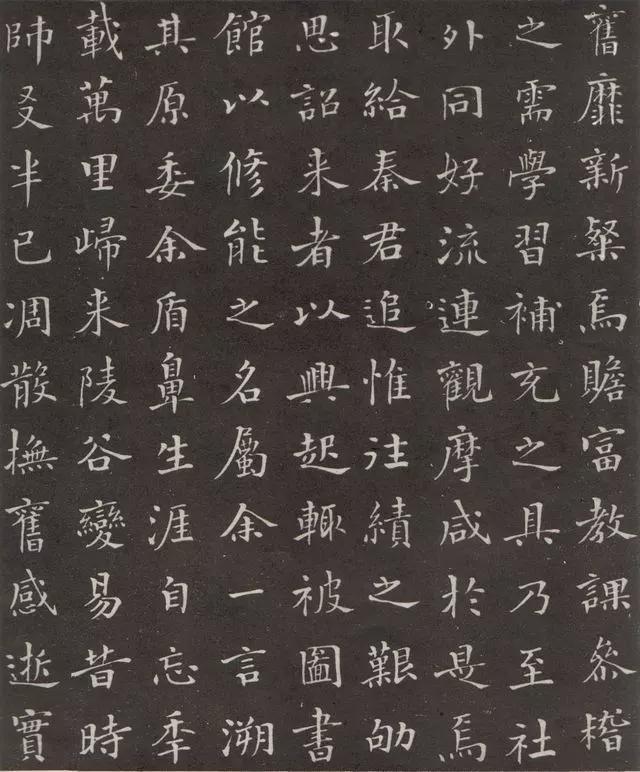 舊靡新粲焉贍富教課參稽
之需學習補充之具乃至社
外同好流連觀摩咸於是焉
取給秦君追惟往績之艱劬
思詔来者以興起輒被圖書
館以修能之名屬余一言溯
其原委余盾鼻生涯自忘季
載萬里歸来陵谷變易昔時
師友半已凋散撫舊感逝實